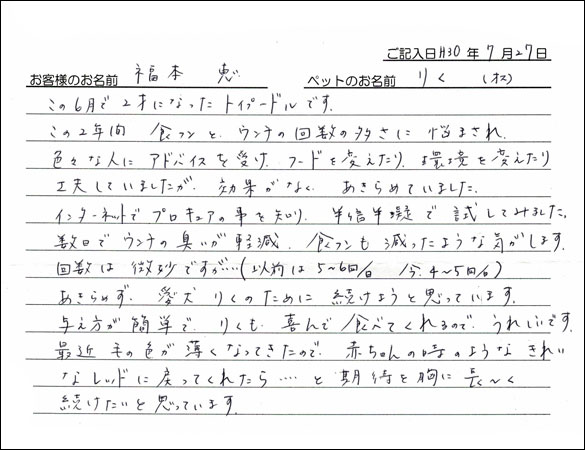 ご記入日H30年7月27日
お客様のお名前 福本 恵 ペットのお名前 りく (オス)
この6月で2才になったトイプードルです。
この2年間 食フンと、ウンチの回数の多さに悩まされ、
色々な人にアドバイスを受け、フードを変えたり、環境を変えたり
工夫していましたが、効果がなく、あきらめていました。
インターネットでプロキュアの事を知り、半信半疑で試してみました。
数日でウンチの臭いが軽減、食フンも減ったような気がします。
回数は微妙ですが‥‥(以前は5~6回/日 今、4~5回/日)
あきらめず、愛犬りくのために続けようと思っています。
与え方が簡単で、りくも喜んで食べてくれるので、うれしいです。
最近毛の色が薄くなってきたので、赤ちゃんの時のようなきれい
なレッドに戻ってくれたら‥‥と期待を胸に長〜く
続けたいと思っています。